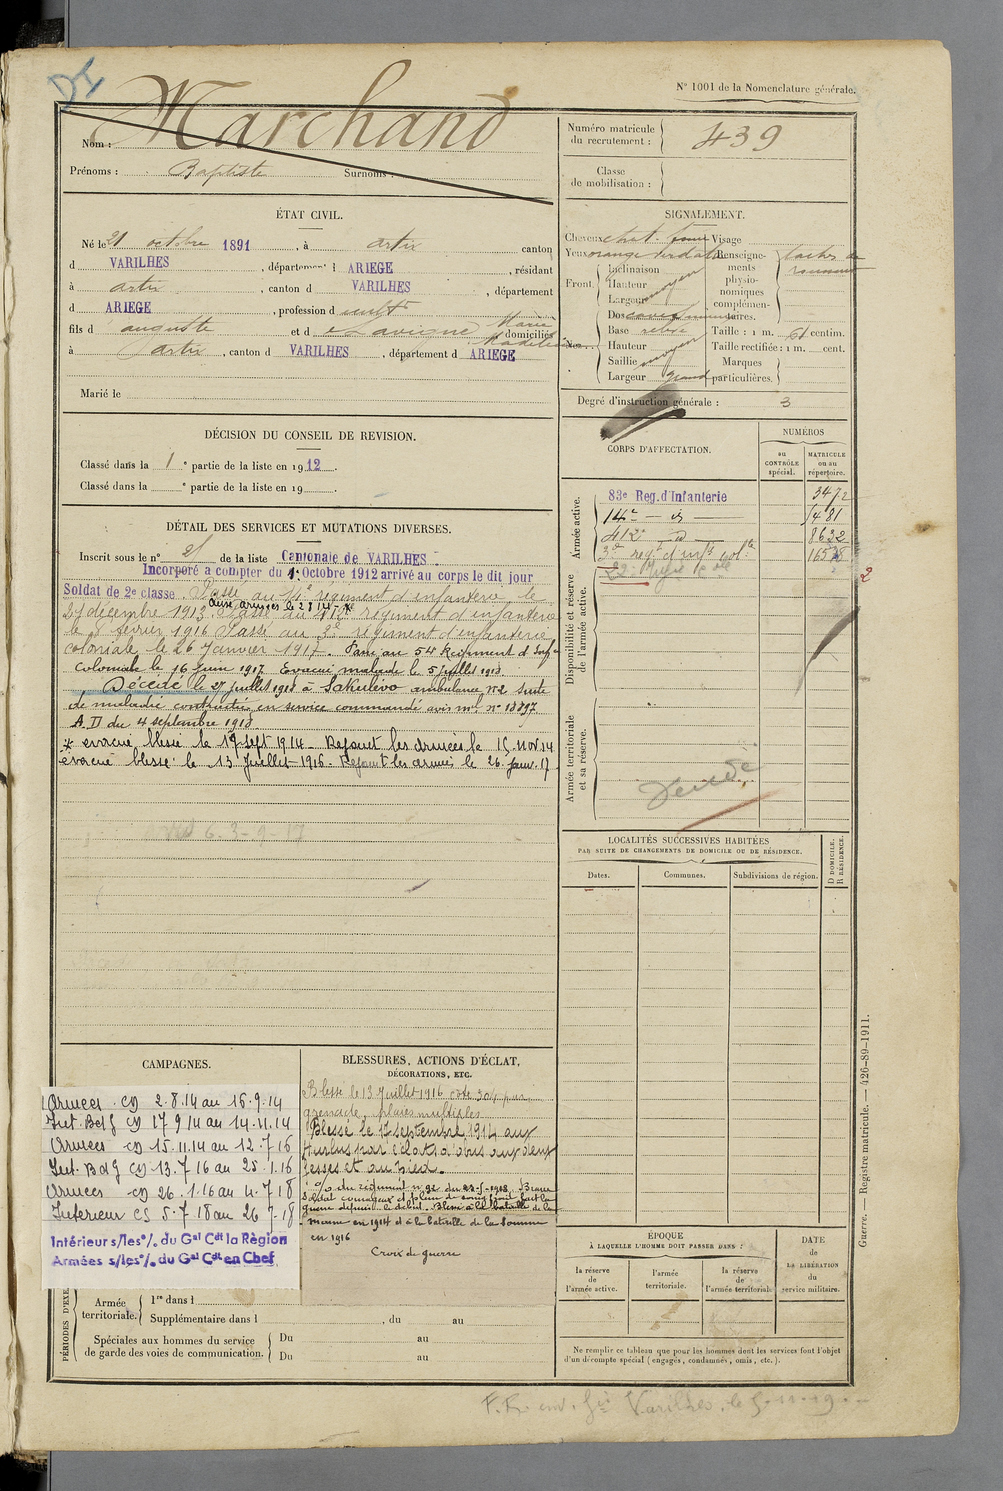 N° 1001 de la Nomenclature générale.
DI
Nom : Marchand
Prénoms : Baptiste Surnoms :
Numéro matricule du recrutement : 439
Classe de mobilisation :
ÉTAT CIVIL.
Né le 21 octobre 1891, à artix canton
d VARILHES, département d ARIEGE, résidant
à artix, canton d VARILHES, département
d ARIEGE, profession d cultr
fils d auguste et d Lavigne Marie Madeleine domiciliés
à artix, canton d VARILHES, département d ARIEGE
Marié le
SIGNALEMENT.
Cheveux chat foncé Visage
Yeux orange verdatre Renseignements physionomiques complémentaires. taches de rousseur
Front. Inclinaison
Hauteur moyen
Largeur
Nez. Dos cave
Base relevé
Hauteur
Saillie moyen
Largeur grand
Taille : 1 m. 61 centim.
Taille rectifiée : 1 m. cent.
Marques particulières.
Degré d'instruction générale : 3
DÉCISION DU CONSEIL DE REVISION.
Classé dans la 1e partie de la liste en 1912.
Classé dans la e partie de la liste en 19
CORPS D'AFFECTATION.
NUMÉROS
au CONTRÔLE spécial.
MATRICULE ou au répertoire.
Armée active.
83e Reg. d'Infanterie 3472
14e — d° — 1481
412e — d° — 8632
3e regt d'inft cole 16538
Disponibilité et réserve de l'armée active.
Armée territoriale et sa réserve.
DÉTAIL DES SERVICES ET MUTATIONS DIVERSES.
Inscrit sous le n° 21 de la liste Cantonale de VARILHES
Incorporé à compter du 1. Octobre 1912 arrivé au corps le dit jour
Soldat de 2e classe. Passé au 14e régiment d'infanterie le
aux armées le 2 8 14 - *
27 décembre 1913. Passé au 412e régiment d'infanterie
le février 1916 Passé au 3e régiment d'infanterie
coloniale le 26 Janvier 1917. Passé au 54 Régiment d'Infie
coloniale le 16 Juin 1917. Evacué malade le 5 Juillet 1918
Décédé le 27 juillet 1918 à Sakulevo ambulance n° 2 suite
de maladie contractée en service commandé avis ml n° 18897
A.D du 4 septembre 1918
* evacué blessé le 17 sept 1914 - Rejoint les armées le 15. nov 14
évacué blessé le 13 Juillet 1916. Rejoint les armées le 26. janv. 17
LOCALITÉS SUCCESSIVES HABITÉES
PAR SUITE DE CHANGEMENTS DE DOMICILE OU DE RÉSIDENCE.
Dates. Communes. Subdivisions de région. D DOMICILE. R RÉSIDENCE.
CAMPAGNES.
Armées CD 2.8.14 au 16.9.14
Int. Belg CD 17 9 14 au 14.11.14
Armées CD 15.11.14 au 12.7.16
Int. Belg CD 13.7 16 au 25.1.16
Armées CD 26.1.16 au 4.7.18
Intérieur CS 5.7 18 au 26 7-18
Intérieur s/les °/. du Gal Cdt la Région
Armées s/les °/. du Gal Cdt en Chef
BLESSURES, ACTIONS D'ÉCLAT,
DÉCORATIONS, ETC.
Blessé le 13 Juillet 1916 cote 304 par
grenade, plaies multiples
Blessé le 17 septembre 1914 aux
Hurlus par éclats d'obus aux deux
fesses et au pied.
°/. du régiment n° 92 du 23-5-1918. Brave
soldat courageux et plein de sang froid fait la
guerre depuis le début. Blessé à la bataille de la
marne en 1914 et à la bataille de la Somme
en 1916
Croix de guerre
PÉRIODES D'EXE
Armée territoriale. 1re dans l
Supplémentaire dans l , du au
Spéciales aux hommes du service de garde des voies de communication. Du au
Du au
ÉPOQUE
À LAQUELLE L'HOMME DOIT PASSER DANS :
la réserve de l'armée active.
l'armée territoriale.
la réserve de l'armée territoriale
DATE de LA LIBÉRATION du service militaire.
Ne remplir ce tableau que pour les hommes dont les services font l'objet
d'un décompte spécial (engagés, condamnés, omis, etc.).
Guerre. — Registre matricule. — 426-89-1911.
Varilhes. le 5-11-19.